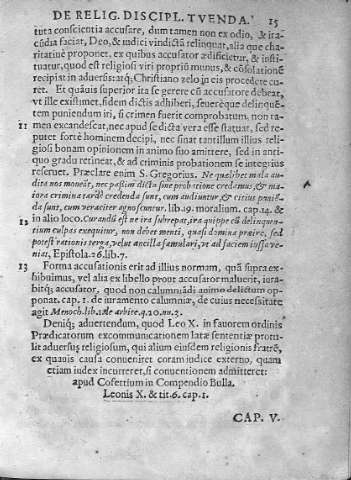 DE RELIG. DISCIPL. TVENDA. 15
tuta conscientia accusare, dum tamen non ex odio, & ira-
cũdia faciat, Deo, & iudici vindictã relinquat, alia que cha-
ritatiuè proponet, ex quibus accusator ædificetur, & insti-
tuatur, quod est religiosi viri proprius munus, & cõsolationẽ
recipist in aduersis: atq; Christiano zelo in eis procedere cu-
ret. Et quãuis superior ita se gerere cũ accusatore debeat,
vt ille existimet, fidem dictis adhiberi, seuerèque delinquẽ-
tem puniendum iri, si crimen fuerit comprobatum, non ta-
11 men excandescat, nec apud se dicta vera esse statuat, sed re-
putet fortè hominem decipi, nec sinat tantillum illius reli-
giosi bonam opinionem in animo suo amittere, sed in anti-
quo gradu retineat, & ad criminis probationem se integrius
reseruet. Præclarè enim S. Gregorius. Ne quælibet mala au-
dita nos moueãt, nec passim dicta sine probatione credamus, & ma-
iora crimina tardè credenda sunt, cum audiuntur, & citius punié-
da sunt, cum veraciter agnoscuntur. lib. 19. moralium. cap. 14. &
12 in alio loco. Curandũ est ne ira subrepat, ira quippe cũ delinquẽ-
tium culpas exequitur, non debet menti, quasi domina præire, sed
post rationis terga, velut ancilla famulari, vt ad faciem iussa ve-
niat, Epistola. 26. lib. 7.
13 Forma accusationis erit ad illius normam, quã supra ex-
hibuimus, vel alia ex libello prout accusator maluerit, iura-
bitq; accusator, quod non calumniãdi animo delictum op-
ponat. cap. 1. de iuramento calumniæ, de cuius necessitate
agit Menoch. lib. 1. de arbitr. q. 20. nu. 3.
Deniq; aduertendum, quod Leo X. in fauorem ordinis
Prædicatorum excommunicationem latæ sententiæ promu-
lit aduersùs religiosum, qui alium eiusdem religionis fratrẽ,
ex quauis causa conueniret coram iudice externo, quam
etiam iudex incurreret, si conuentionem admitteret:
apud Cofertium in Compendio Bulla.
Leonis X. & tit. 6. cap. 1.
CAP. V.